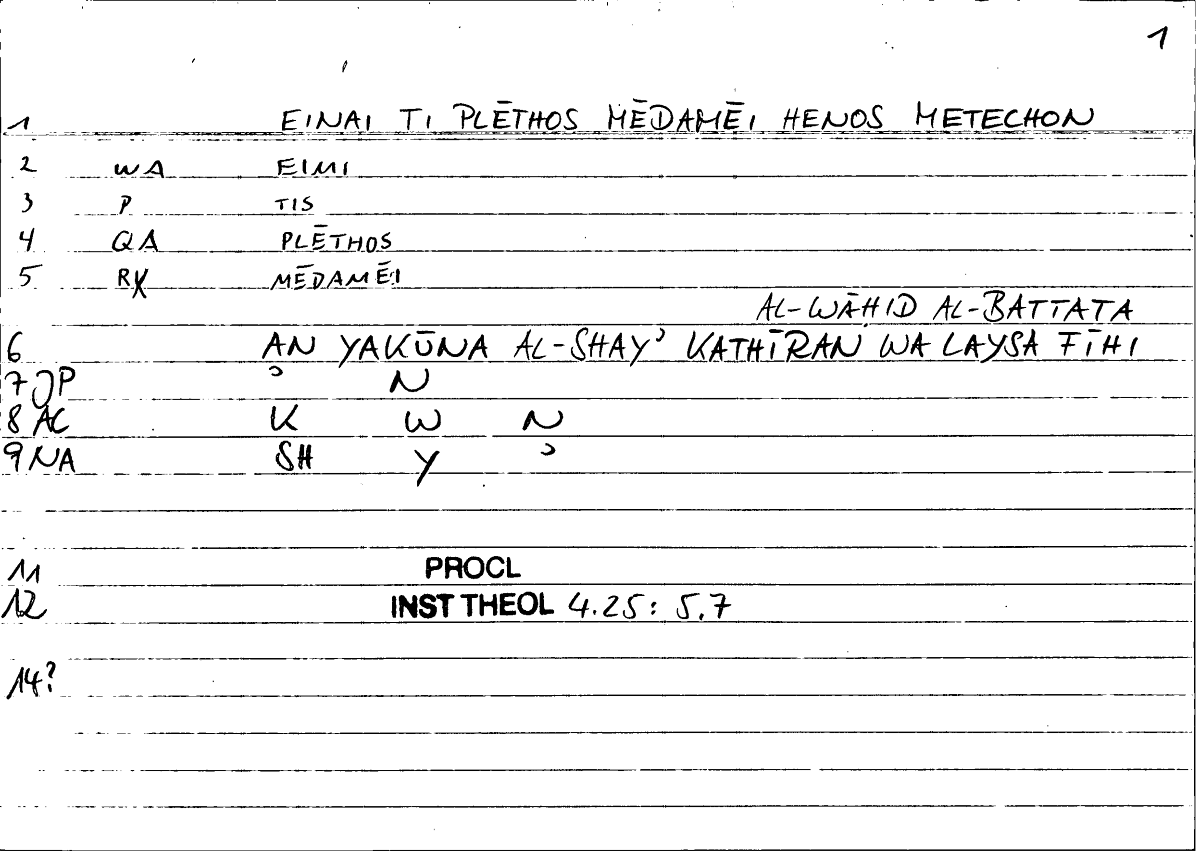 1
1 EINAI TI PLĒTHOS MĒDAMĒI HENOS METECHON
2 WA EIMI
3 P TIS
4 QA PLĒTHOS
5 RX MĒDAMĒI
AL-WĀHID AL-BATTATA
6 AN YAKŪNA AL-SHAYʾ KATHĪRAN WA LAYSA FĪHI
7 JP ʾ N
8 AC K W N
9 NA SH Y ʾ
11 PROCL
12 INST THEOL 4.25: 5,7
14?